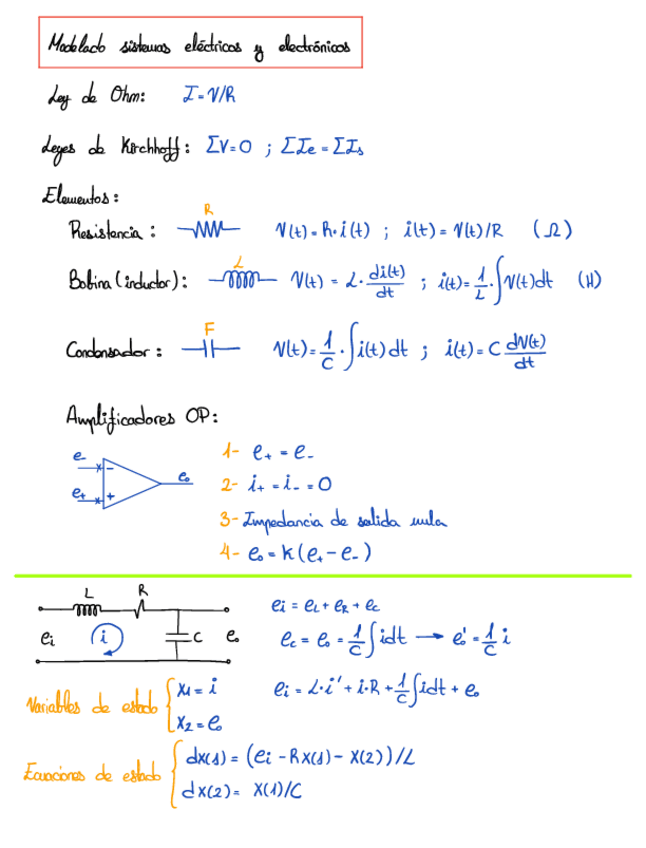 Modelado sistemas eléctricos y electrónicos
Ley de Ohm: I = V/R
Leyes de Kirchhoff: ΣV=0 ; ΣIe = ΣIs
Elementos:
R
Resistencia: V(t) = R·i(t) ; i(t) = V(t)/R (Ω)
L
Bobina (inductor): V(t) = L· di(t)/dt ; i(t) = 1/L · ∫V(t)dt (H)
F
Condensador: V(t) = 1/C · ∫i(t)dt ; i(t) = C dV(t)/dt
Amplificadores OP:
e- -
e+ +
eo
1- e+ = e-
2- i+ = i- = 0
3- Impedancia de salida nula
4- eo = K(e+ - e-)
L R
ei i C eo
ei = eL + eR + ec
ec = eo = 1/C ∫idt → eo' = 1/C i
ei = L·i' + i·R + 1/C ∫idt + eo
Variables de estado { x1 = i
x2 = eo
Ecuaciones de estado { dx(1) = (ei - Rx(1) - x(2))/L
dx(2) = x(1)/C